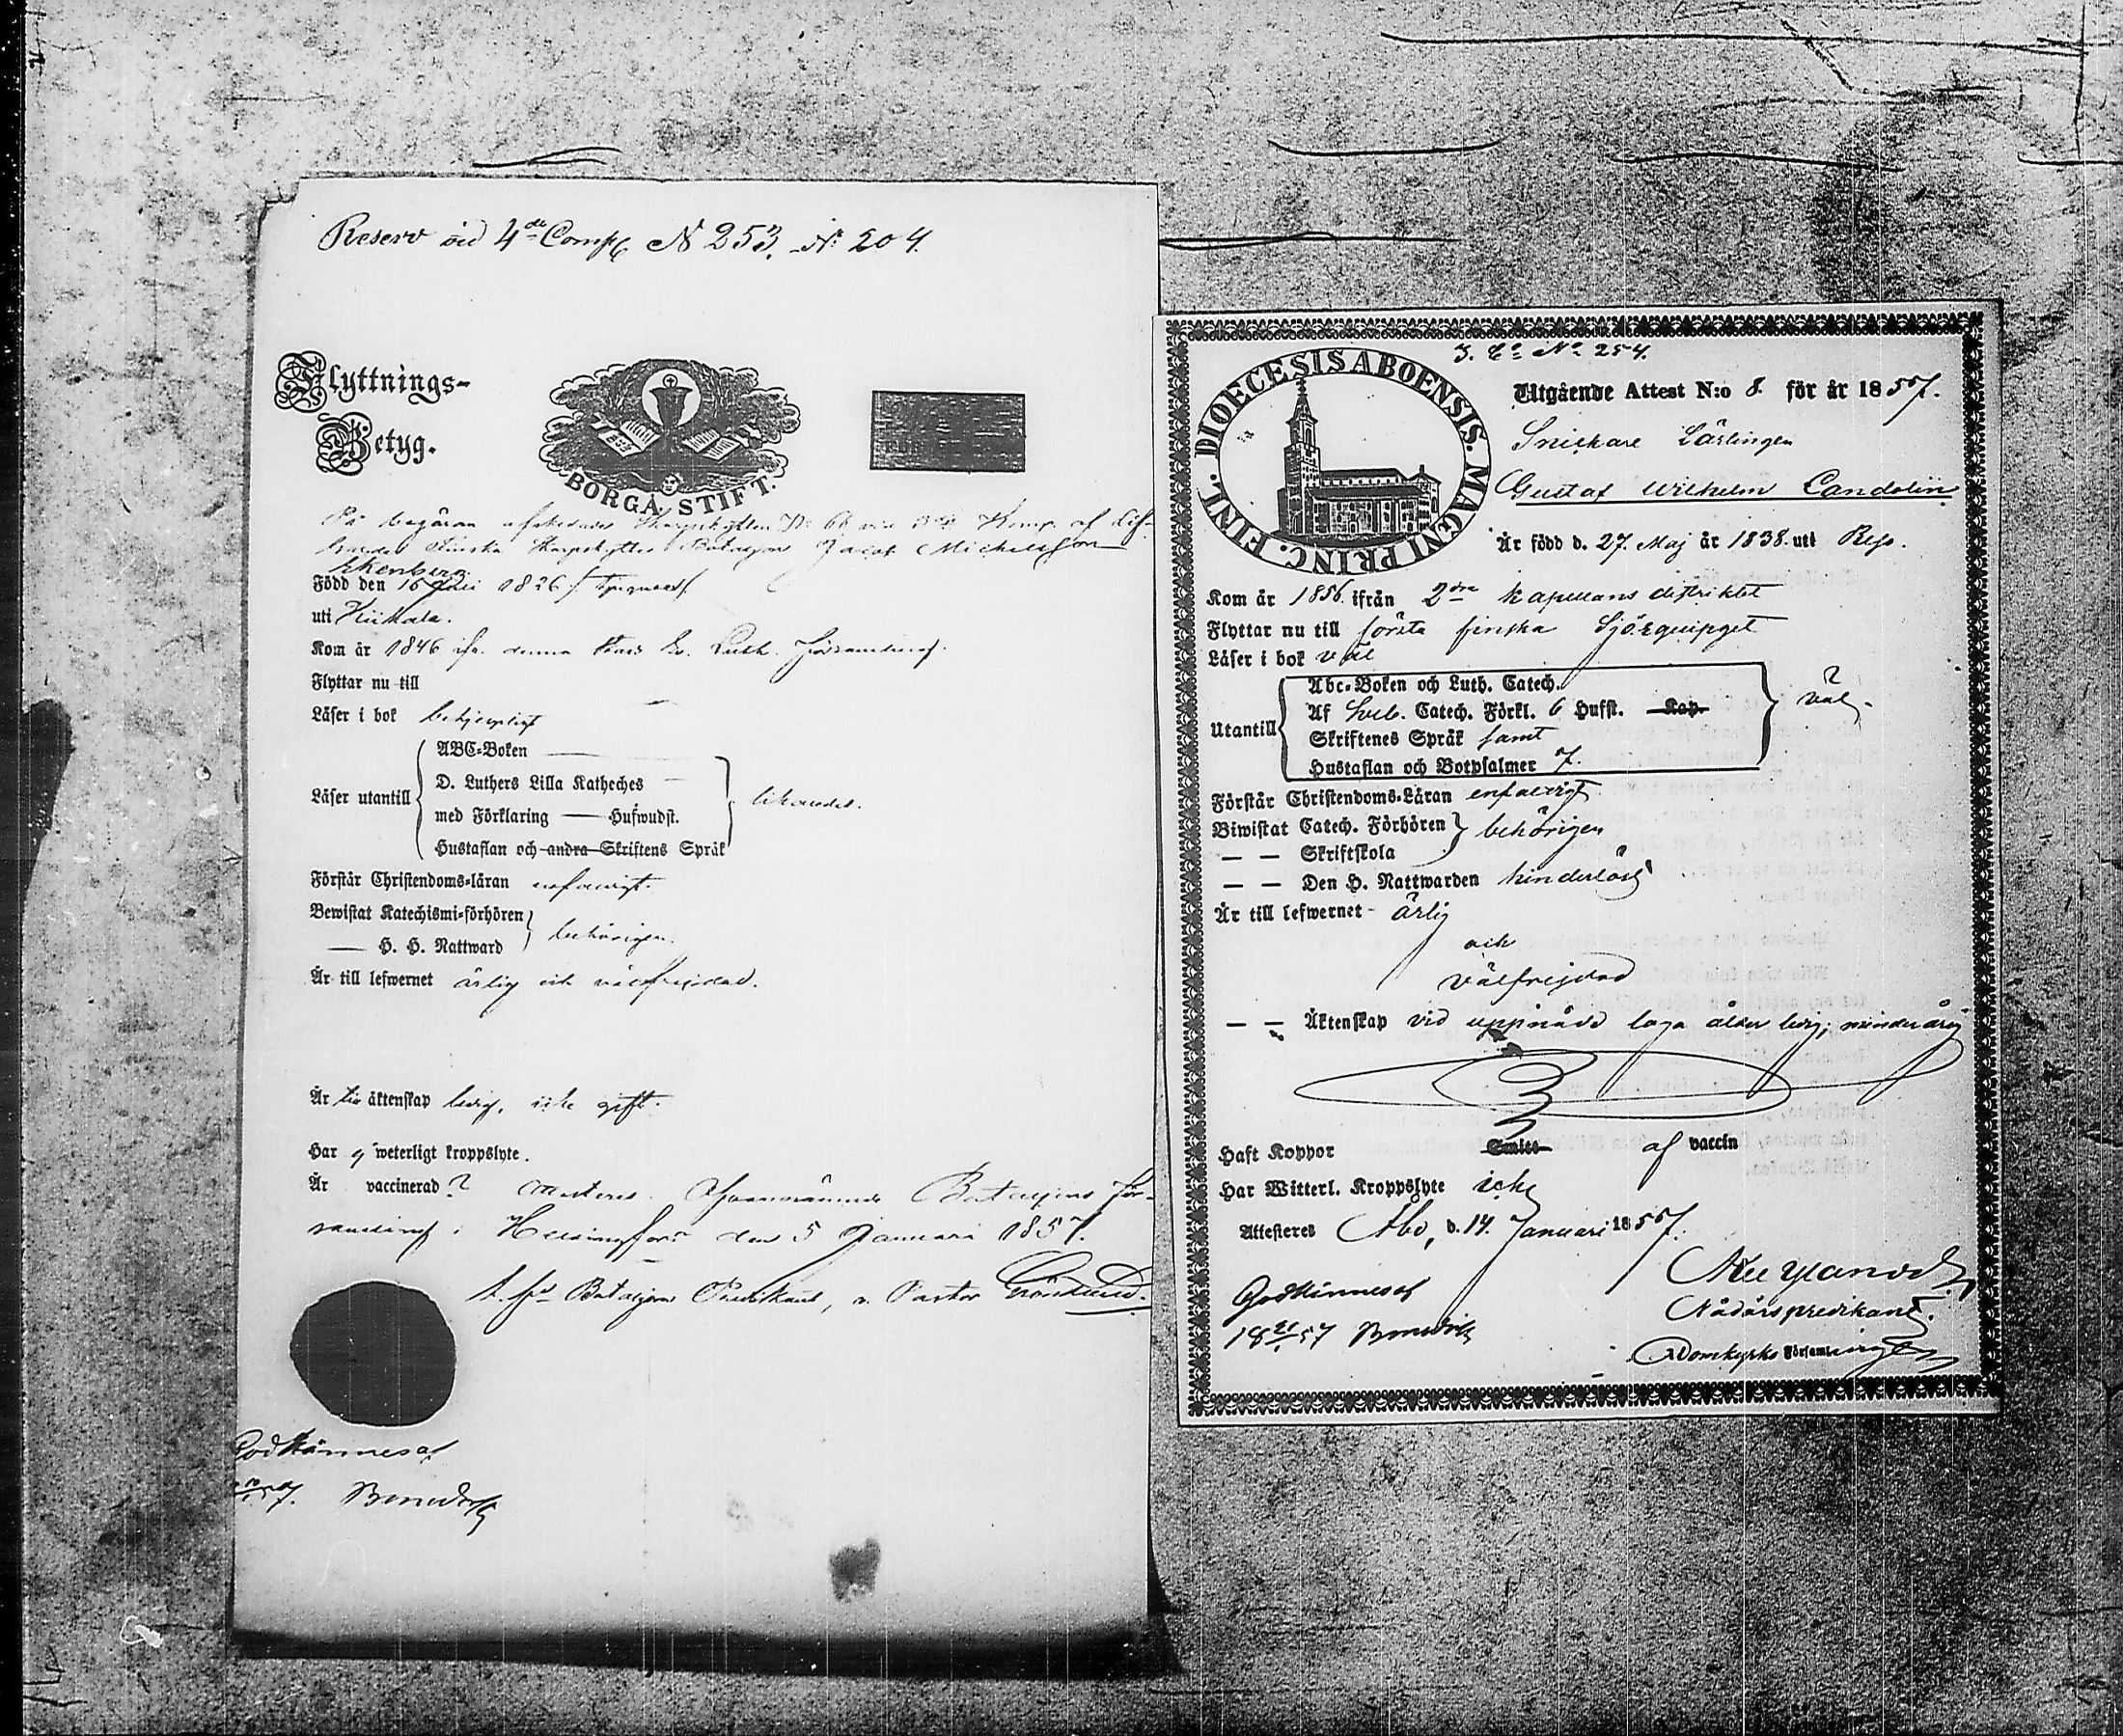 Reserv vid 4de Comp N 253. No 204.
Flyttnings-
Betyg.
BORGÅ STIFT.
På begäran afskedade Skarpskytten No 66 vid Komp. af Lif-
Gardes Finska Skarpskytte Bataljon Jacob Michelsson
Ekenberg
Född den 16 Juli 1826
uti Kiikala.
Kom år 1846 ifr. denna Stads Ev. Luth. församling.
Flyttar nu till
Läser i bok behjerpligt
ABC-Boken
D. Luthers Lilla Katheches
Läser utantill
med Förklaring — Hufwudst.
likaledes.
Hustaflan och andra Skriftens Språk
Förstår Christendoms-läran enfaldigt.
Bewistat Katechismi-förhören
— H. H. Nattward
behörigen.
Är till lefwernet ärlig och välfrejdad.
Är till äktenskap ledig, icke gift.
Har ej weterligt kroppslyte.
Är vaccinerad? Attesteras. Ofvannämnde Bataljons För-
samling i Helsingfors den 5 Januari 1857.
Bataljons Predikant, v. Pastor Grönlund.
Godkännes af
DIOECESIS ABOENSIS. MAGNI PRINC. FINL.
3. Co. No. 254.
Utgående Attest N:o 8. för år 1857.
Snickare Lärlingen
Gustaf Wilhelm Candolin
Är född d. 27. Maj år 1838. uti Reso.
Kom år 1856. ifrån 2dra kapellans distriktet
Flyttar nu till första finska Sjöequipaget
Läser i bok väl
Abc-Boken och Luth. Catech.
Af Sveb. Catech. Förkl. 6 Hufst. Kap.
väl.
Utantill
Skriftenes Språk samt
Hustaflan och Botpsalmer 7.
Förstår Christendoms-Läran enfaldigt
Biwistat Catech. Förhören
behörigen
— — Skriftskola
— — Den H. Nattwarden hinderlöst
Är till lefwernet - ärlig
och
välfrejdad
— — Äktenskap vid uppnådd laga ålder ledig; minderårig
Haft Koppor Smitt af vaccin
Har Witterl. Kroppslyte icke
Attesteres Åbo, d. 14. Januari 1857.
Nådårspredikant.
Godkännes af
Domkyrko Församlingen